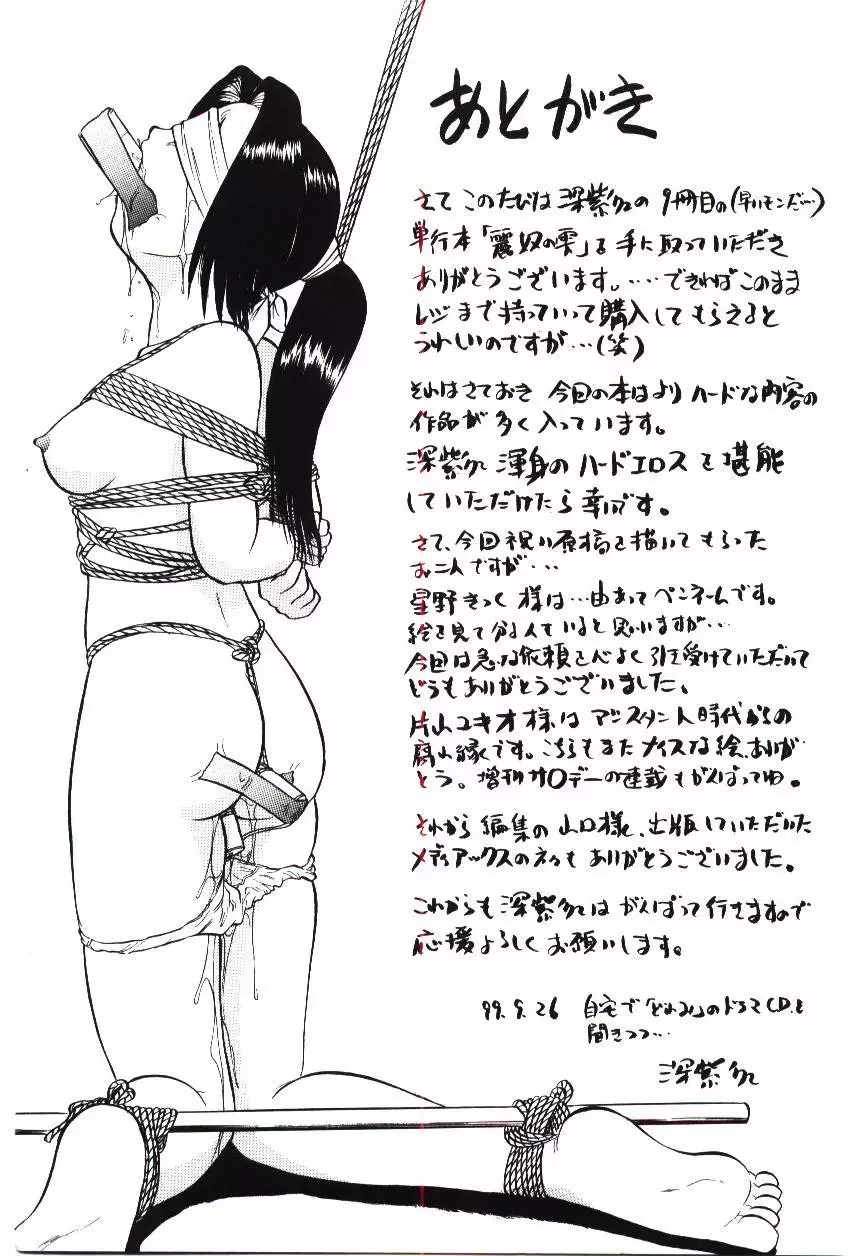 あとがき
さて このたびは 深紫紅の 9冊目の(早いモンだ…)
単行本「麗奴の雫」を 手に取っていただき
ありがとうございます。……できればこのまま
レジまで持っていって購入してもらえると
うれしいのですが…(笑)
それはさておき 今回の本はより ハードな内容の
作品が 多く入っています。
深紫紅 渾身の ハードエロスを 堪能
していただけたら 幸いです。
さて、今回 祝い原稿を描いてもらった
お二人ですが…
星野きっく 様は…由あってペンネームです。
絵を見て分る人もいると思いますが…
今回は急な依頼を心よく引き受けていただいて
どうもありがとうございました。
片山ユキオ様は アシスタント時代からの
腐れ縁です。こちらもまたナイスな絵、ありが
とう。増刊サ○デーの連載もがんばってね。
それから 編集の 山口様、出版していただいた
メディアックスの も ありがとうございました。
これからも 深紫紅は がんばって行きますので
応援よろしく お願いします。
99.9.26 自宅で「どれみ」のドラマCDを
聞きつつ…
深紫紅